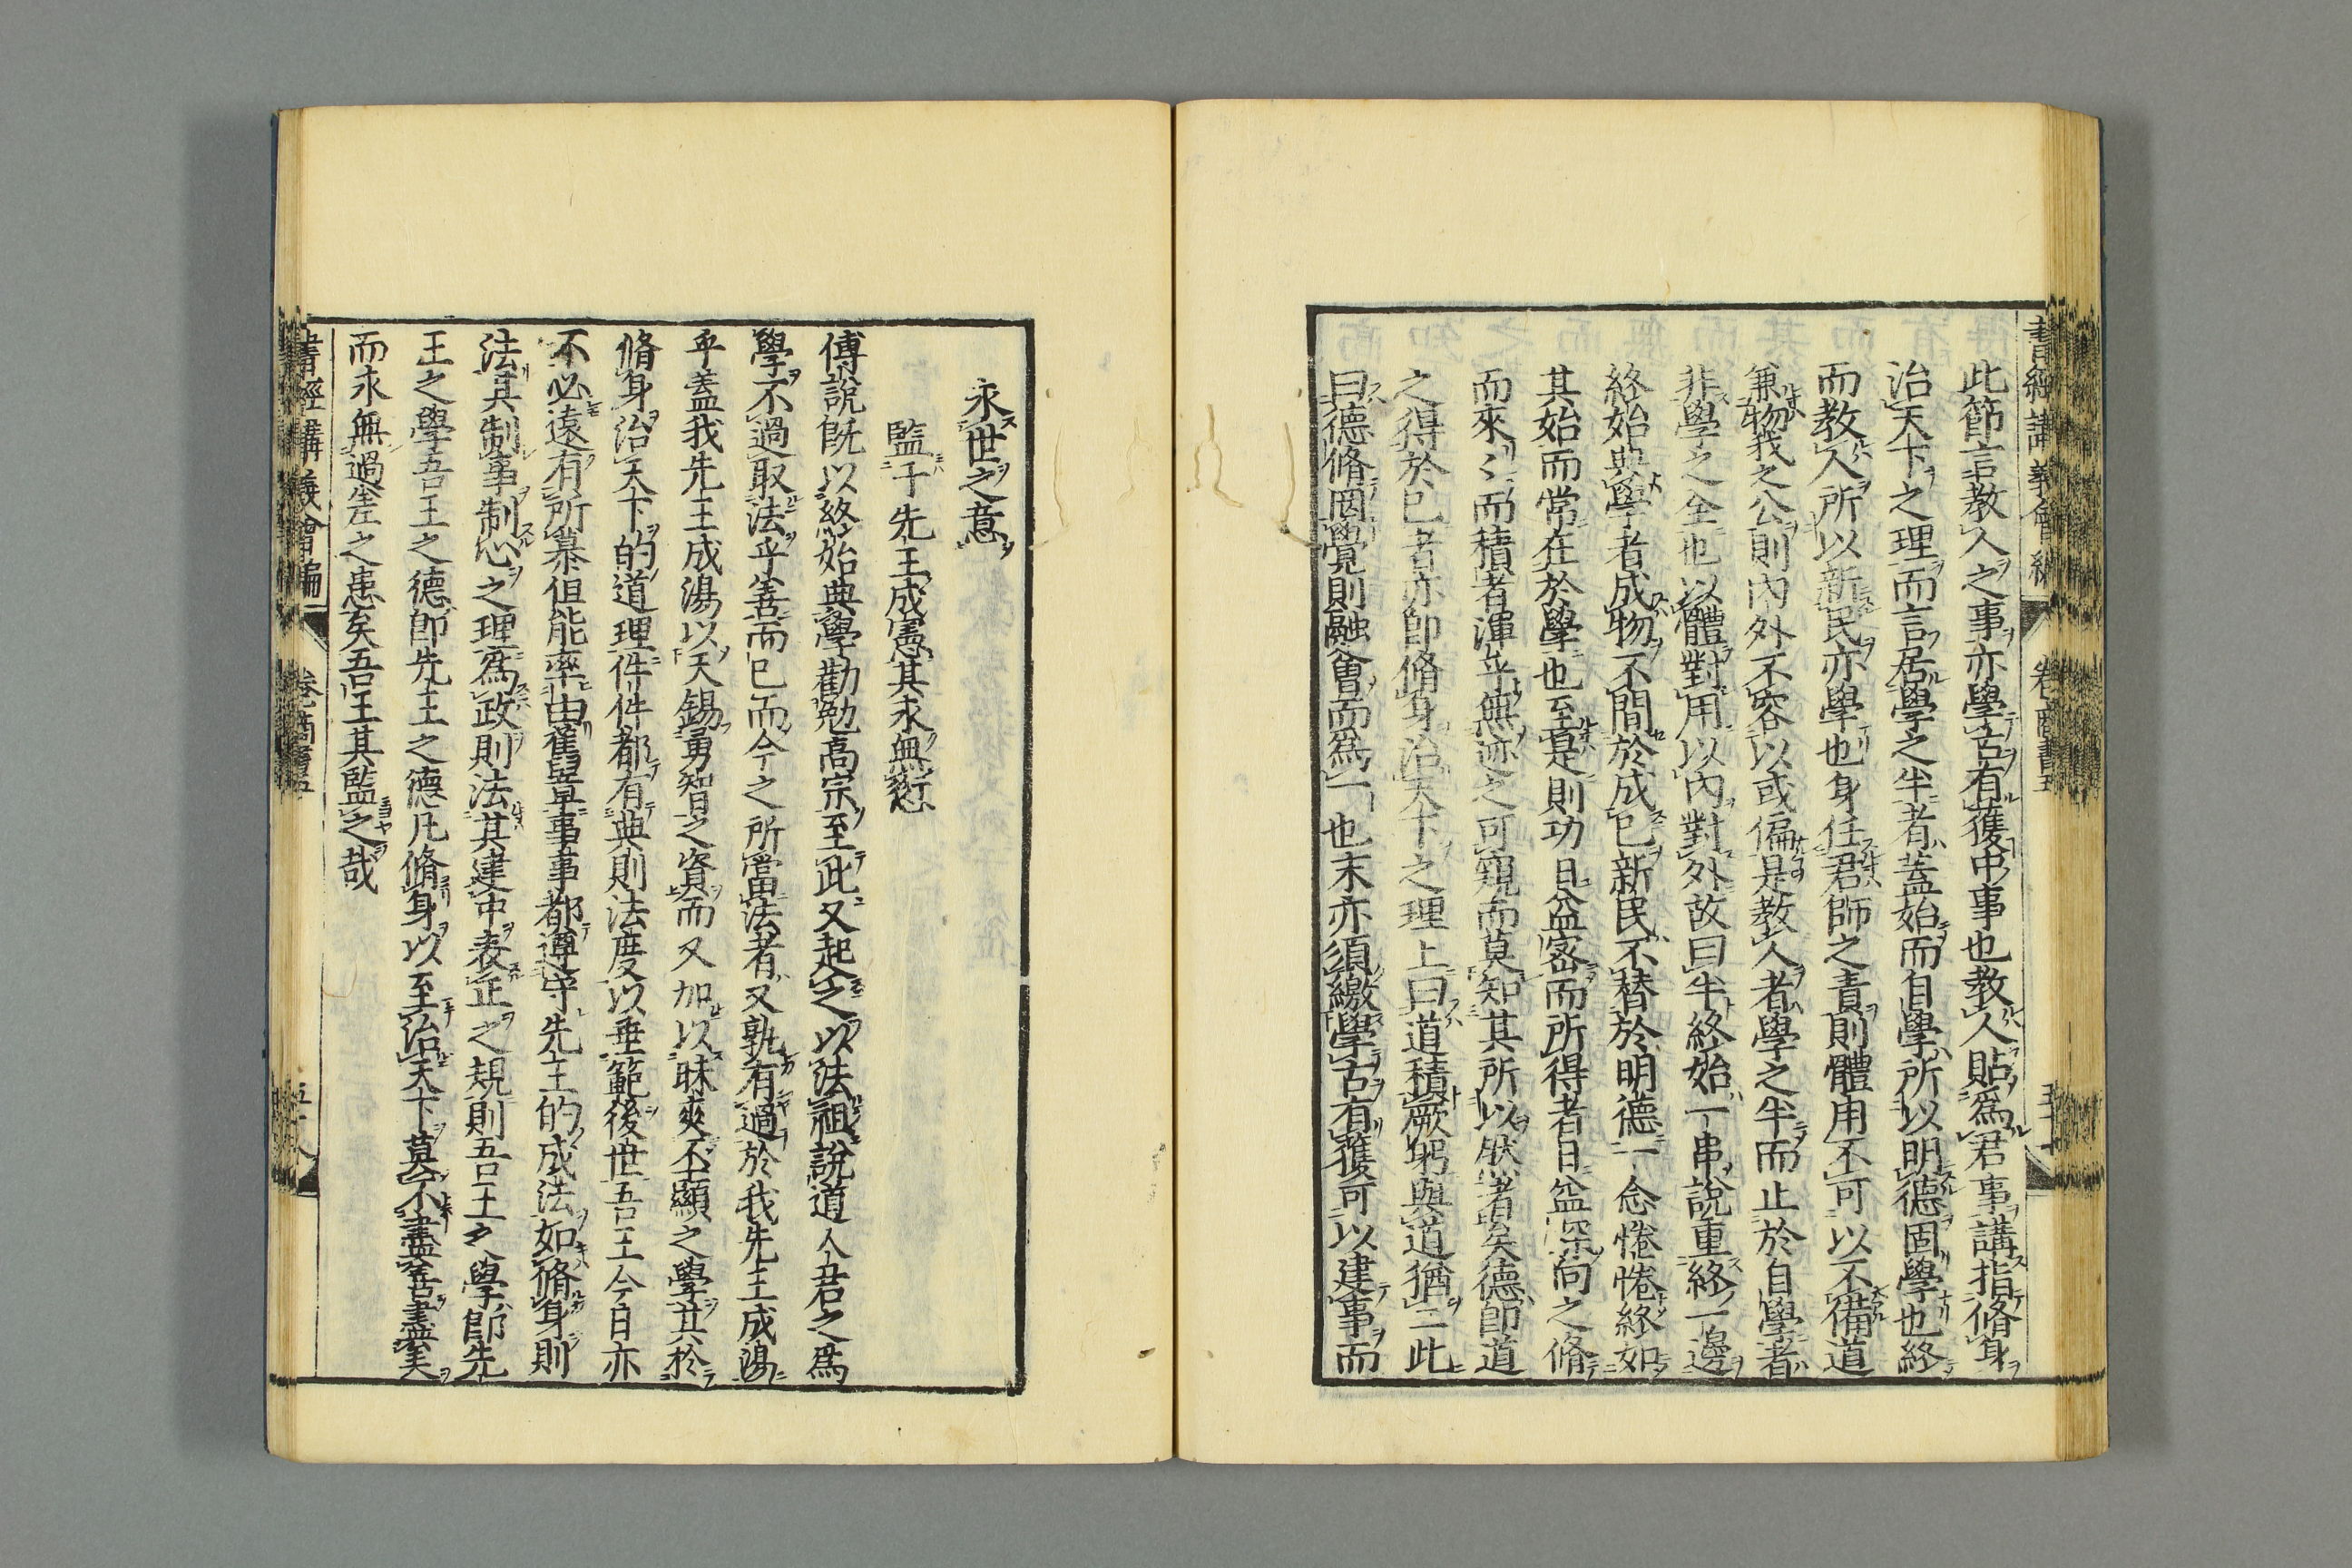 此節言教人之事亦學古有獲中事也教人貼爲君事講指脩身
治天下之理而言居學之半者蓋始而自學所以明德固學也終
而教人所以新民亦學也身任君師之責則體用不可以不備道
兼物我之公則內外不容以或偏是教人者學之半而止於自學者
非學之全也以體對用以內對外故曰半終始一串說重終一邊
終始典學者成物不間於成己新民不替於明德一念惓惓終如
其始而常在於學也至是則功日益密而所得者日益深向之脩
而來〻而積者渾乎無迹之可窺而莫知其所以然者矣德卽道
之得於己者亦卽脩身治天下之理上曰道積厥躬與道猶二此
曰德脩罔覺則融會而爲一也末亦須繳學古有獲可以建事而
永世之意
監于先王成憲其永無愆
傅說旣以終始典學勸勉高宗至此又起之以法祖說道人君之爲
學不過取法乎善而已而今之所當法者又孰有過於我先王成湯
乎蓋我先王成湯以天錫勇智之資而又加以昧爽丕顯之學其於
脩身治天下的道理件件都有典則法度以垂範後世吾王今日亦
不必遠有所慕但能率由舊章事事都遵守先王的成法如脩身則
法其制事制心之理爲政則法其建中表正之規則吾王之學卽先
王之學吾王之德卽先王之德凡脩身以至治天下莫不盡善盡美
而永無過差之患矣吾王其監之哉
書經講義會編 卷 商書五 五十八